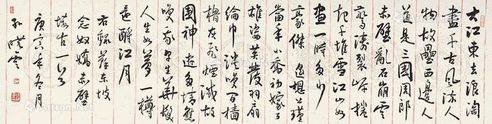 大江東去浪淘
盡千古風流人
物故壘西邊人
道是三國周郎
赤壁亂石崩雲
驚濤裂岸捲
起千堆雪江山如
畫一時多少
豪傑遙想公瑾
當年小喬初嫁了
雄姿英發羽扇
綸巾談笑間檣
櫓灰飛煙滅故
國神遊多情應
笑我早生華髮
人生如夢一樽
還酹江月
右蘇東坡
念奴嬌赤壁
懷古一首
庚寅年冬月
孫曉雲